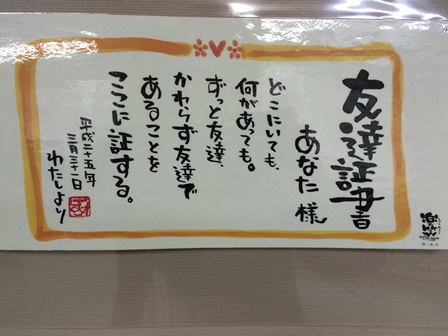 友達証書
あなた様
どこにいても、
何があっても。
ずっと友達、
かわらず友達で
あることを
ここに証する。
平成二十五年
三月三十一日
わたしより